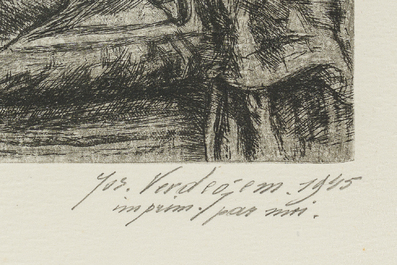 Jos. Verdegem. 1945
imprim. par moi.